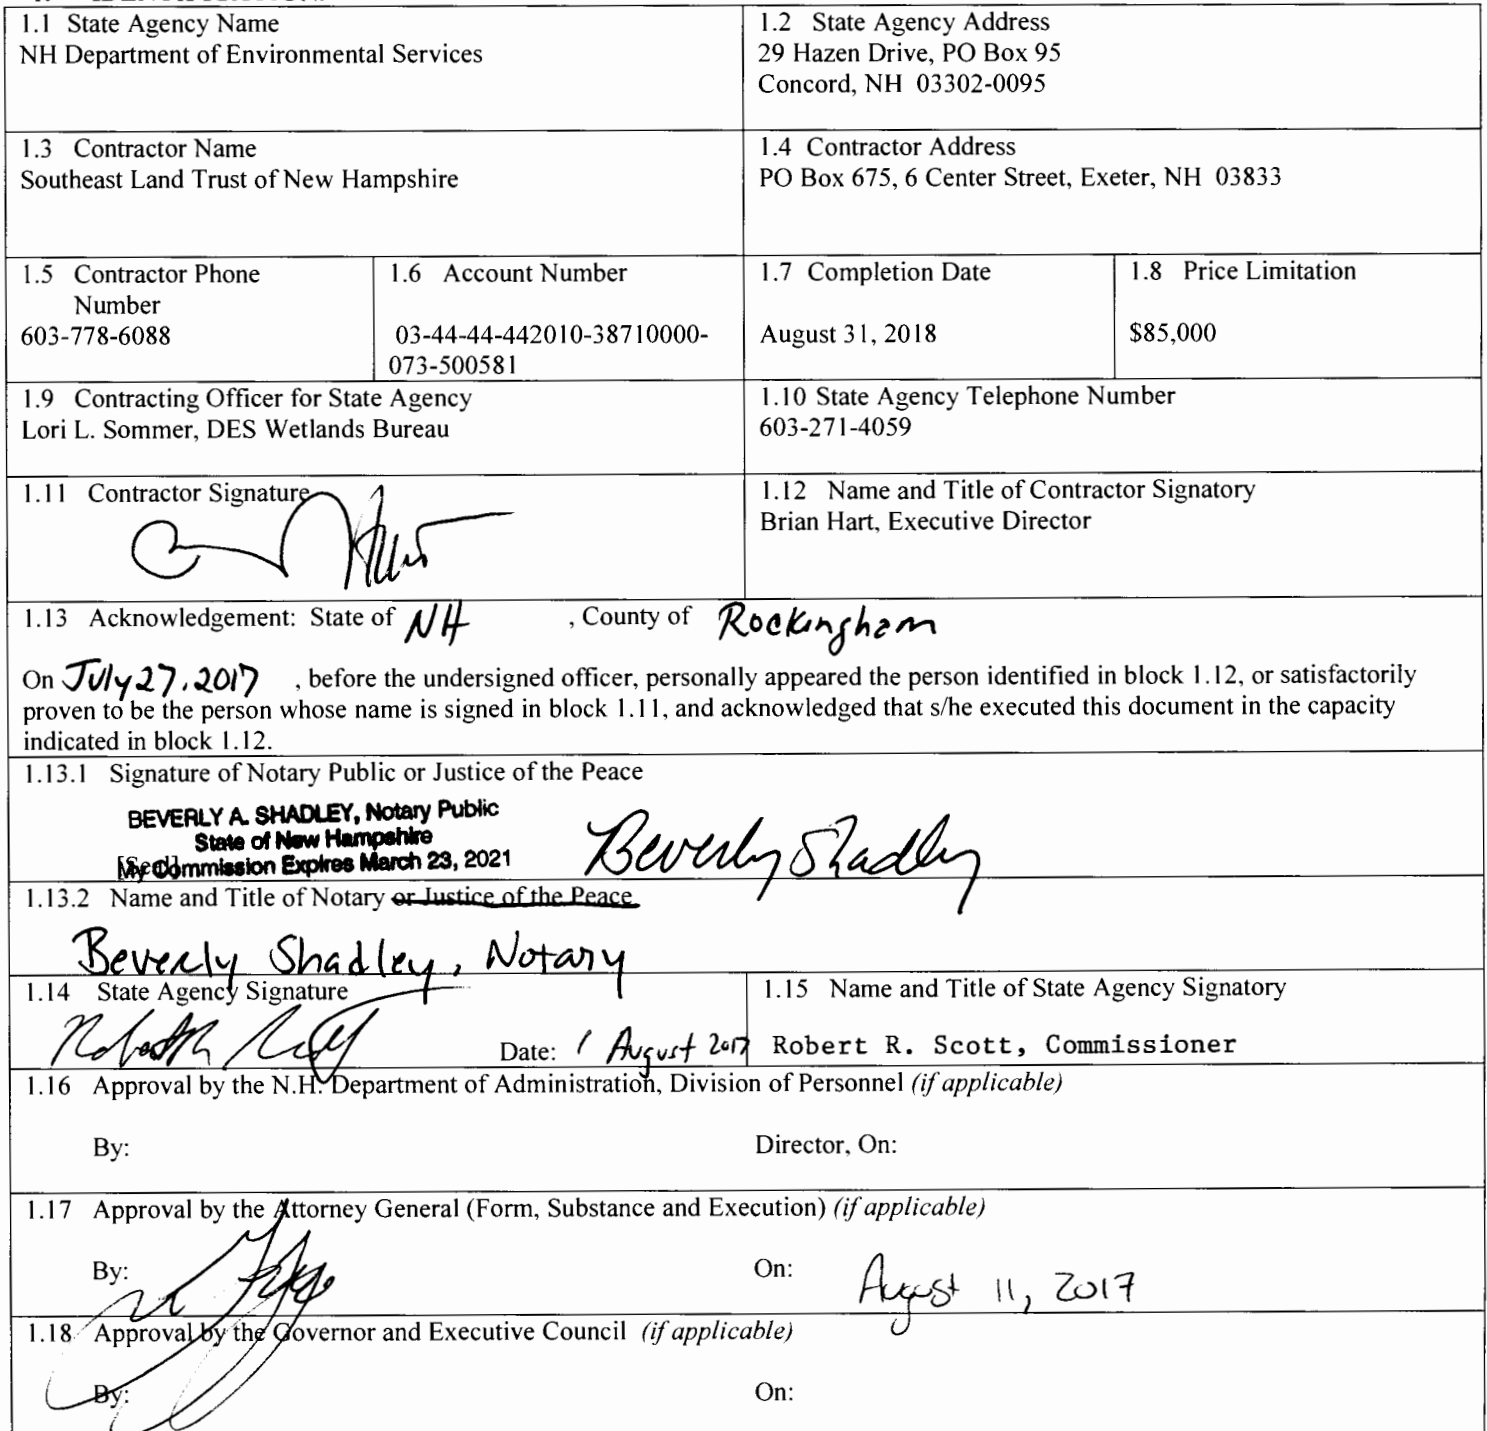 1.1 State Agency Name
NH Department of Environmental Services
1.2 State Agency Address
29 Hazen Drive, PO Box 95
Concord, NH 03302-0095
1.3 Contractor Name
Southeast Land Trust of New Hampshire
1.4 Contractor Address
PO Box 675, 6 Center Street, Exeter, NH 03833
1.5 Contractor Phone
Number
603-778-6088
1.6 Account Number
03-44-44-442010-38710000-
073-500581
1.7 Completion Date
August 31, 2018
1.8 Price Limitation
$85,000
1.9 Contracting Officer for State Agency
Lori L. Sommer, DES Wetlands Bureau
1.10 State Agency Telephone Number
603-271-4059
1.11 Contractor Signature
1.12 Name and Title of Contractor Signatory
Brian Hart, Executive Director
1.13 Acknowledgement: State of NH , County of Rockingham
On July 27, 2017 , before the undersigned officer, personally appeared the person identified in block 1.12, or satisfactorily
proven to be the person whose name is signed in block 1.11, and acknowledged that s/he executed this document in the capacity
indicated in block 1.12.
1.13.1 Signature of Notary Public or Justice of the Peace
BEVERLY A. SHADLEY, Notary Public
State of New Hampshire
[Seal]
My Commission Expires March 23, 2021
Beverly Shadley
1.13.2 Name and Title of Notary or Justice of the Peace
Beverly Shadley, Notary
1.14 State Agency Signature
Date: 1 August 2017
1.15 Name and Title of State Agency Signatory
Robert R. Scott, Commissioner
1.16 Approval by the N.H. Department of Administration, Division of Personnel (if applicable)
By: Director, On:
1.17 Approval by the Attorney General (Form, Substance and Execution) (if applicable)
By: On: August 11, 2017
1.18 Approval by the Governor and Executive Council (if applicable)
By: On: